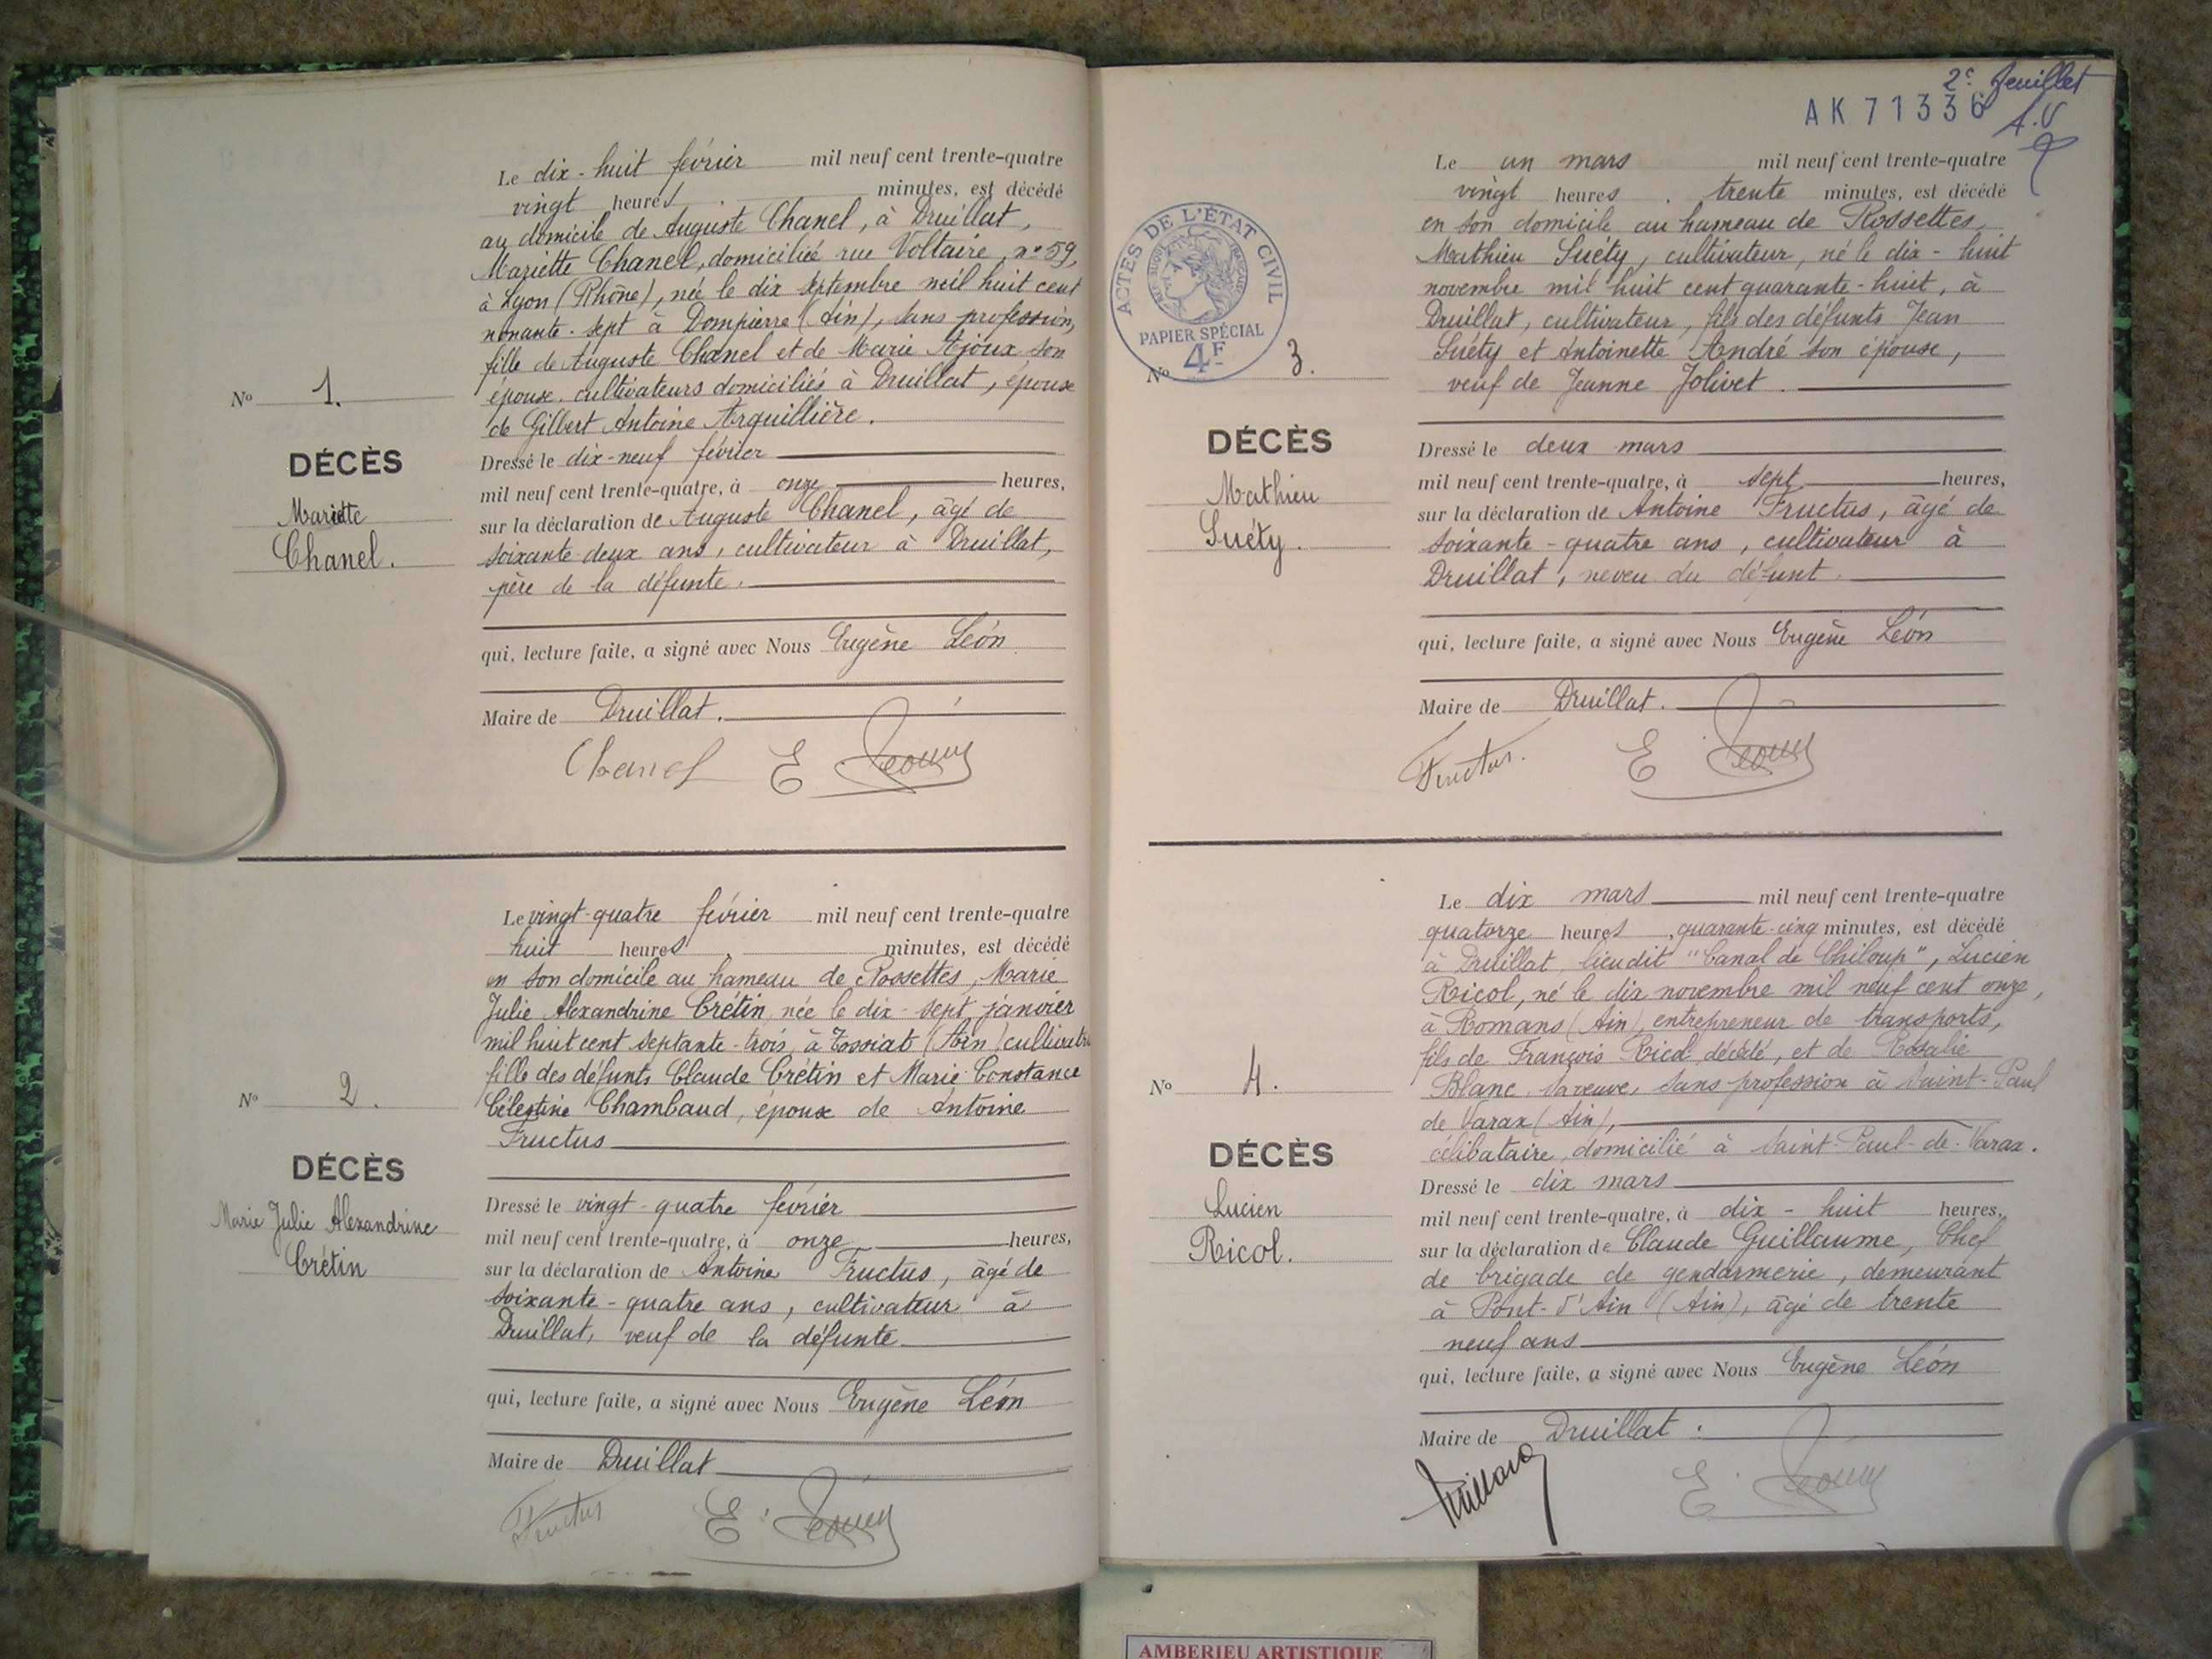 Le dix-huit février mil neuf cent trente-quatre
vingt heures minutes, est décédé
au domicile de Auguste Chanel, à Druillat,
Mariette Chanel, domiciliée rue Voltaire, n° 59,
à Lyon (Rhône), née le dix septembre mil huit cent
nonante-sept à Dompierre (Ain), sans profession,
fille de Auguste Chanel et de Marie Ajoux son
épouse, cultivateurs domiciliés à Druillat, épouse
de Gilbert Antoine Arquillière.
No 1.
DÉCÈS
Mariette
Chanel.
Dressé le dix-neuf février
mil neuf cent trente-quatre, à onze heures,
sur la déclaration de Auguste Chanel, âgé de
soixante-deux ans, cultivateur à Druillat,
père de la défunte.
qui, lecture faite, a signé avec Nous Eugène Léon
Maire de Druillat.
Chanel E
Le vingt-quatre février mil neuf cent trente-quatre
huit heures minutes, est décédé
en son domicile au hameau de Rossettes, Marie
Julie Alexandrine Crétin, née le dix-sept janvier
mil huit cent septante-trois, à Tossiat (Ain)
fille des défunts Claude Crétin et Marie Constance
Célestine Chambaud, épouse de Antoine
Fructus
No 2.
DÉCÈS
Marie Julie Alexandrine
Crétin
Dressé le vingt-quatre février
mil neuf cent trente-quatre, à onze heures,
sur la déclaration de Antoine Fructus, âgé de
soixante-quatre ans, cultivateur à
Druillat, veuf de la défunte
qui, lecture faite, a signé avec Nous Eugène Léon
Maire de Druillat
Fructus E.
2e feuillet
AK 71336
A.V
Le un mars mil neuf cent trente-quatre
vingt heures, trente minutes, est décédé
en son domicile au hameau de Rossettes,
Mathieu Suéty, cultivateur, né le dix-huit
novembre mil huit cent quarante-huit, à
Druillat, cultivateur, fils des défunts Jean
Suéty et Antoinette André son épouse,
veuf de Jeanne Jolivet.
ACTES DE L'ÉTAT CIVIL
PAPIER SPÉCIAL
4F
No 3.
DÉCÈS
Mathieu
Suéty.
Dressé le deux mars
mil neuf cent trente-quatre, à sept heures,
sur la déclaration de Antoine Fructus, âgé de
soixante-quatre ans, cultivateur à
Druillat, neveu du défunt.
qui, lecture faite, a signé avec Nous Eugène Léon
Maire de Druillat.
Fructus. E
Le dix mars mil neuf cent trente-quatre
quatorze heures, quarante-cinq minutes, est décédé
à Druillat, lieu dit "Canal de Chiloup", Lucien
Ricol, né le dix novembre mil neuf cent onze,
à Romans (Ain), entrepreneur de transports,
fils de François Ricol décédé, et de Rosalie
Blanc, sa veuve, sans profession à Saint-Paul
de Varax (Ain),
célibataire, domicilié à Saint-Paul-de-Varax.
No 4.
DÉCÈS
Lucien
Ricol.
Dressé le dix mars
mil neuf cent trente-quatre, à dix-huit heures,
sur la déclaration de Claude Guillaume, Chef
de brigade de gendarmerie, demeurant
à Pont-d'Ain (Ain), âgé de trente
neuf ans
qui, lecture faite, a signé avec Nous Eugène Léon
Maire de Druillat.
E.
AMBERIEU ARTISTIQUE